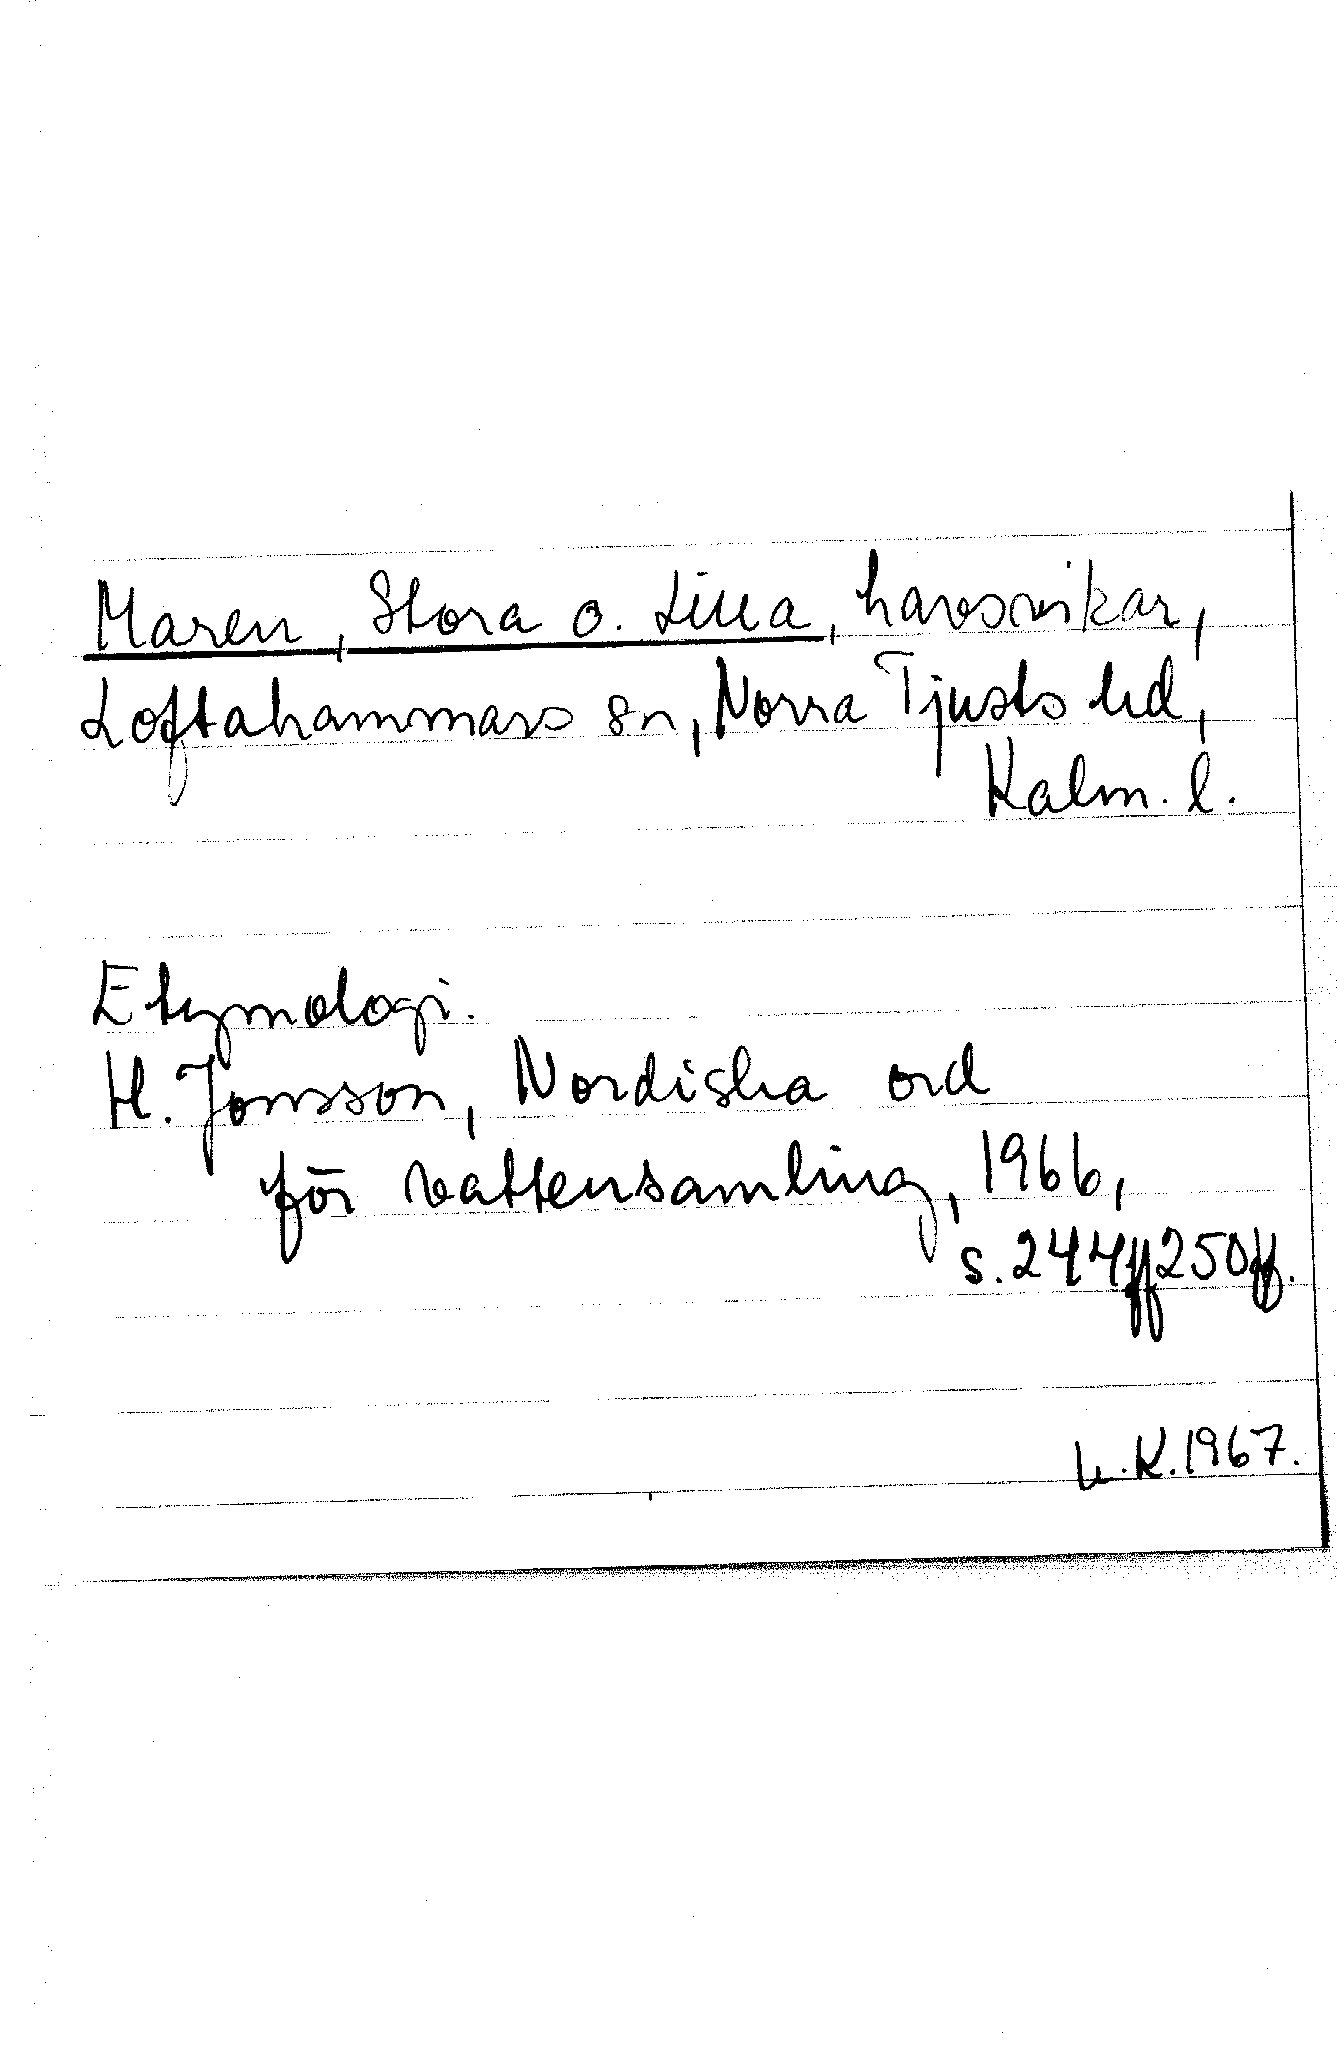 Maren, Stora o. Lilla, havsvikar,
Loftahammars sn, Norra Tjusts hd,
Kalm. l.
Etymologi.
H. Jonsson, Nordiska ord
för vattensamling, 1966,
s. 244ff 250ff.
L.K. 1967.